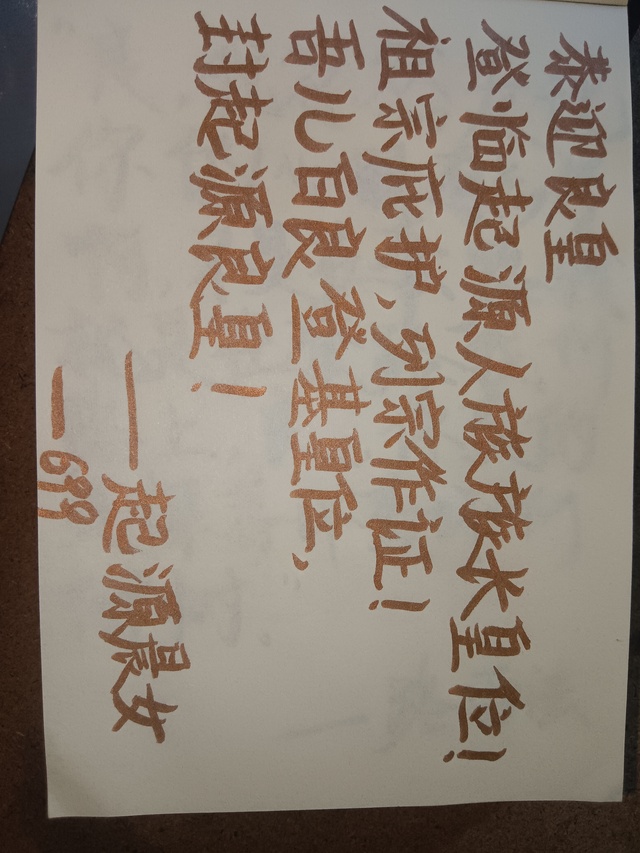 恭迎良皇
登临起源人族族长皇位！
祖宗庇护、列宗作证！
吾儿百良登基皇位、
封起源良皇！
——起源晨女
—699